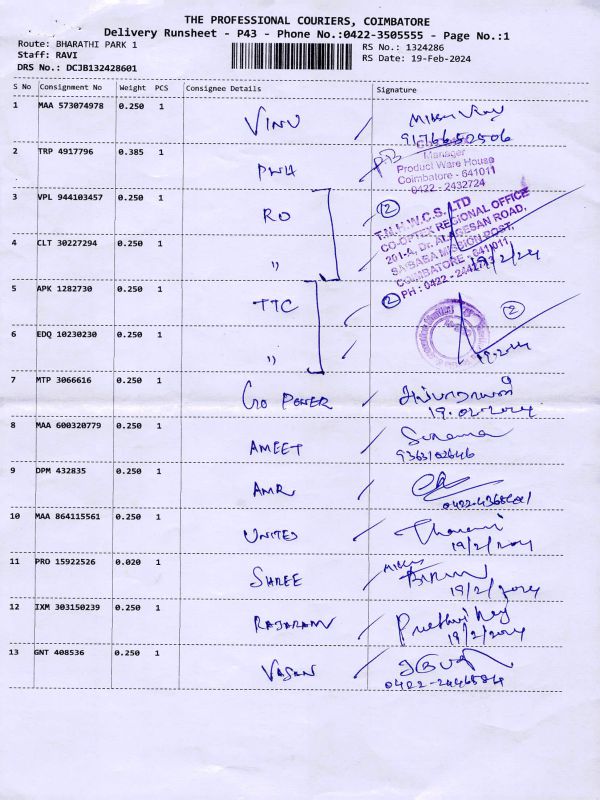 THE PROFESSIONAL COURIERS, COIMBATORE
Delivery Runsheet - P43 - Phone No.:0422-3505555 - Page No.:1
Route: BHARATHI PARK 1
Staff: RAVI
DRS No.: DCJB132428601
RS No.: 1324286
RS Date: 19-Feb-2024
S No Consignment No Weight PCS Consignee Details Signature
1 MAA 573074978 0.250 1 VINU
9176652506
2 TRP 4917796 0.385 1 PWH
Manager
Product Ware House
Coimbatore - 641011
0422 - 2432724
3 VPL 944103457 0.250 1 RO 2
T.N.H.W.C.S. LTD
CO-OPTEX REGIONAL OFFICE
201-A, Dr. ALAGESAN ROAD,
SAIBABA MISSION POST,
COIMBATORE - 641 011,
PH : 0422 -
4 CLT 30227294 0.250 1 " 19/2/24
5 APK 1282730 0.250 1 TTC 2 2
6 EDQ 10230230 0.250 1 " 19.2.24
7 MTP 3066616 0.250 1 GO POWER
19.02.2024
8 MAA 600320779 0.250 1 AMEET
9363102646
9 DPM 432835 0.250 1 AMR
10 MAA 864115561 0.250 1 UNITED
19/2/2024
11 PRO 15922526 0.020 1 SHREE
19/2/2024
12 IXM 303150239 0.250 1 RAJARAM
19/2/2024
13 GNT 408536 0.250 1 VASAN